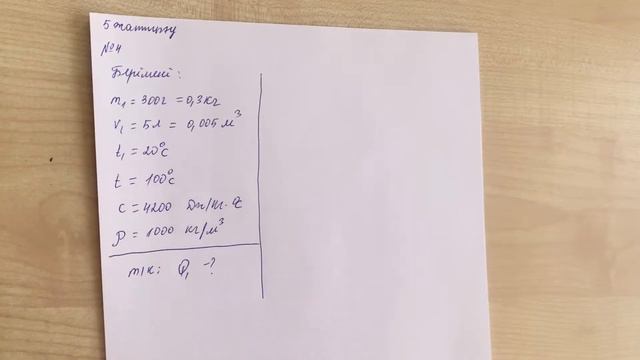 5 жаттығу
№4
Берілгені:
m₁ = 300г = 0,3кг
V₁ = 5л = 0,005 м³
t₁ = 20°C
t = 100°C
c = 4200 Дж/кг·°C
ρ = 1000 кг/м³
т/к: Q₁ -?